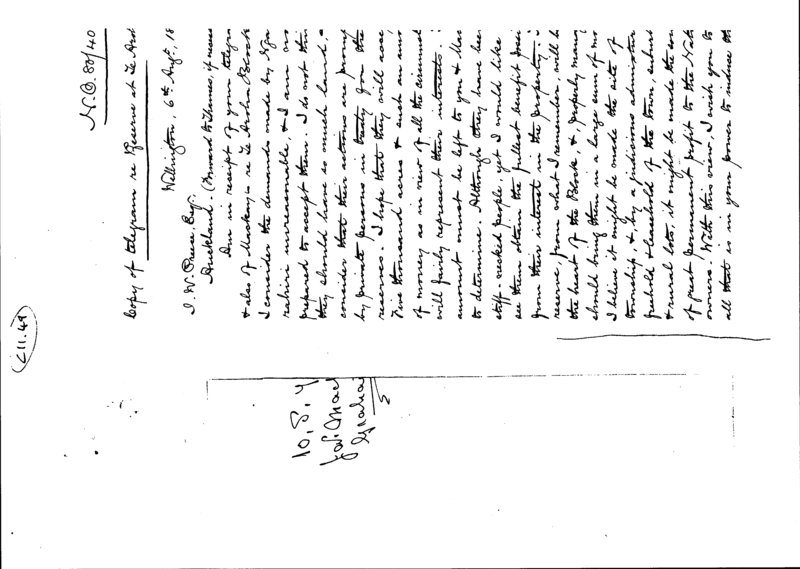 N.O. 80/40
Copy of telegram re Reserve at Te Aro
Wellington, 6th Augt, 18
J. W. Preece Esq.
Auckland. (Forward to Thames, if necess
Am in receipt of your telegra
& also of Mackay's re Te Aroha Block
I consider the demands made by Nga
unreasonable, & I am no
prepared to accept them. I do not thin
they should have so much land. &
consider that their actions are promp
by private persons in treaty for the
reserves. I hope that they will acce
Five thousand acres & such an amo
of money as in view of all the circumst
will fairly represent their interests.
amount must be left to you & Mac
to determine. Although they have be
stiff-necked people, yet I would like
see them obtain the fullest benefit poss
from their interest in the property.
reserve, from what I remember, will b
the heart of the Block, &, properly mana
should bring them in a large sum of mo
I believe it might be made the site of
township, &, by a judicious administra
freehold & leasehold of the town, subur
& rural lots, it might be made the so
of great permanent profit to the Nati
owners. With this view, I wish you to
all that is in your power to induce th
(C11.49)
10.8.